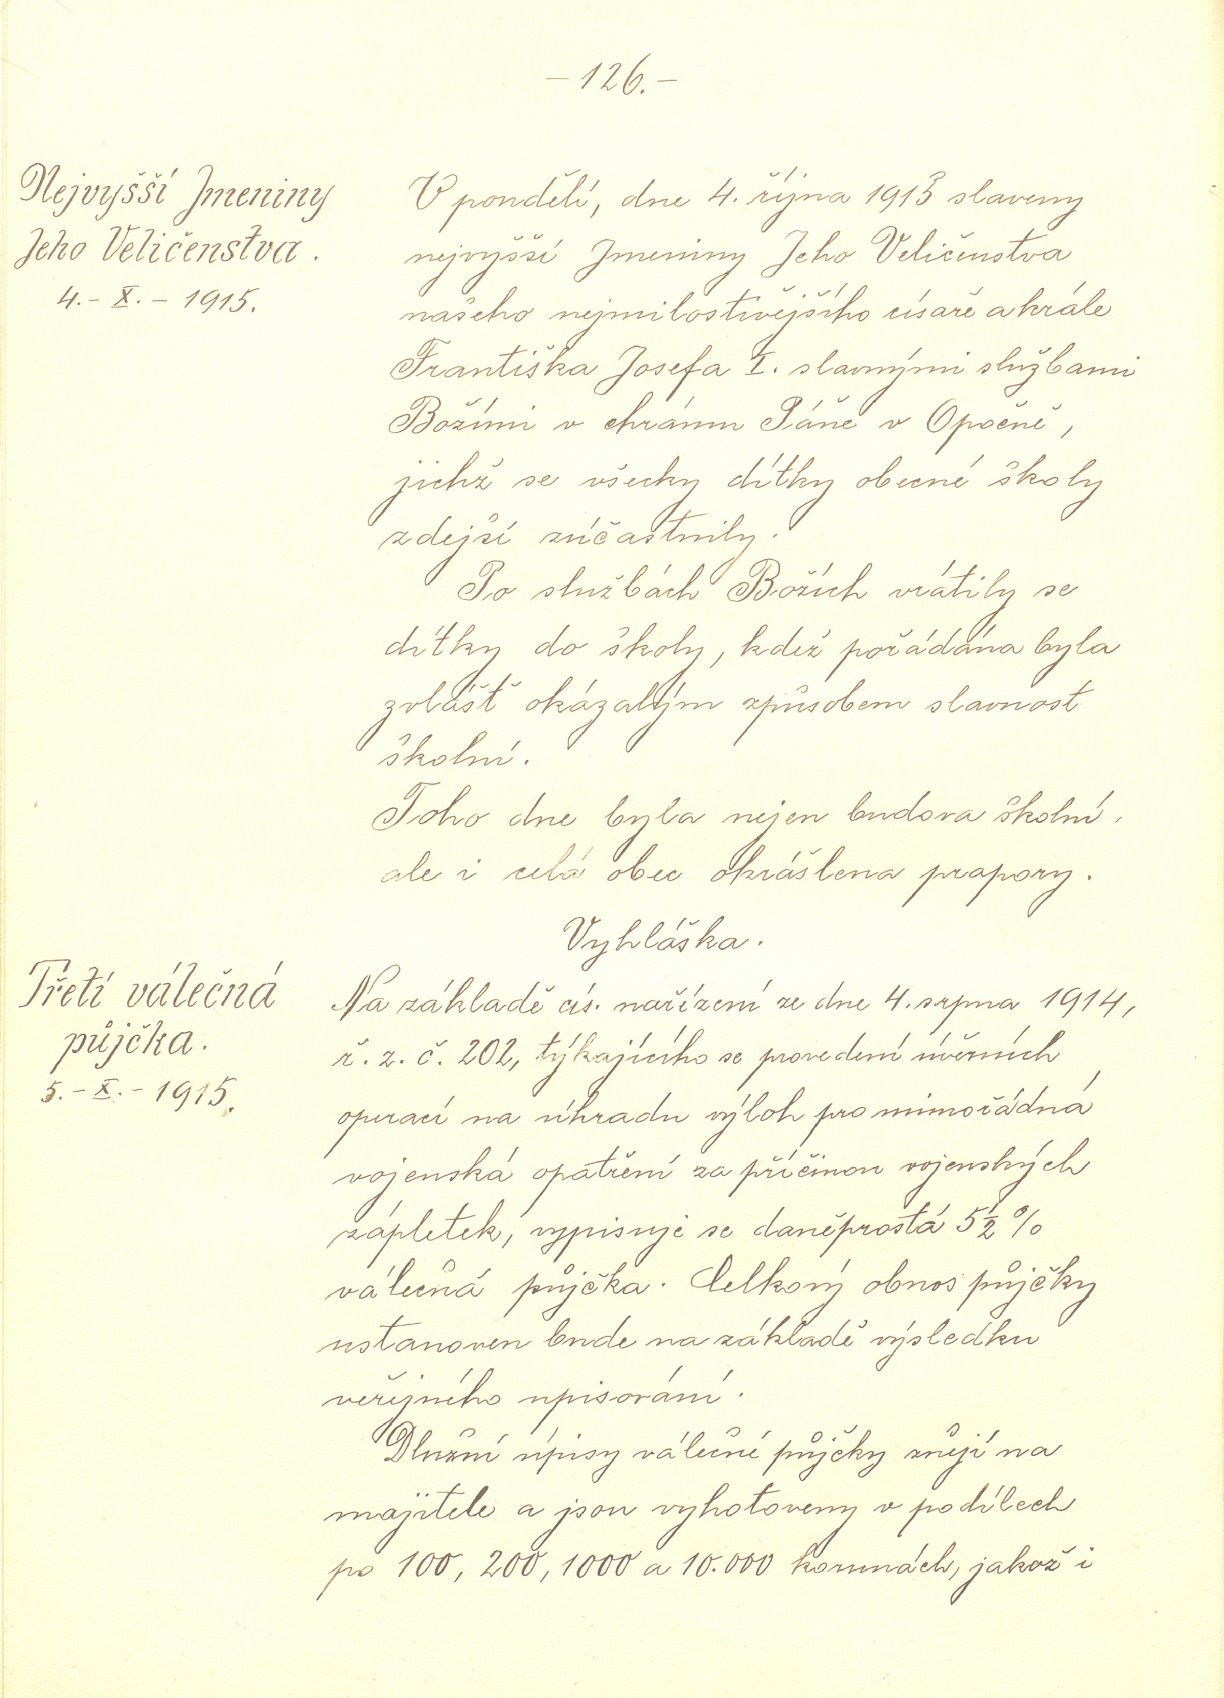 – 126. –
Nejvyšší Jmeniny
Jeho Veličenstva.
4. – X. – 1915.
V pondělí, dne 4. října 1915 slaveny
nejvyšší Jmeniny Jeho Veličenstva
našeho nejmilostivějšího císaře a krále
Františka Josefa I. slavnými službami
Božími v chrámu Páně v Opočně,
jichž se všecky dítky obecné školy
zdejší súčastnily.
Po službách Božích vrátily se
dítky do školy, kdež pořádána byla
zvlášť okázalým způsobem slavnost
školní.
Toho dne byla nejen budova školní,
ale i celá obec okrášlena prapory.
Vyhláška.
Třetí válečná
půjčka.
5. – X. – 1915.
Na základě cís. nařízení ze dne 4. srpna 1914,
ř. z. č. 202, týkajícího se provedení úvěrních
operací na úhradu výloh pro mimořádná
vojenská opatření za příčinou vojenských
zápletek, vypisuje se daněprostá 5½ %
válečná půjčka. Celkový obnos půjčky
ustanoven bude na základě výsledku
veřejného upisování.
Dlužní úpisy válečné půjčky znějí na
majitele a jsou vyhotoveny v podílech
po 100, 200, 1000 a 10.000 korunách, jakož i